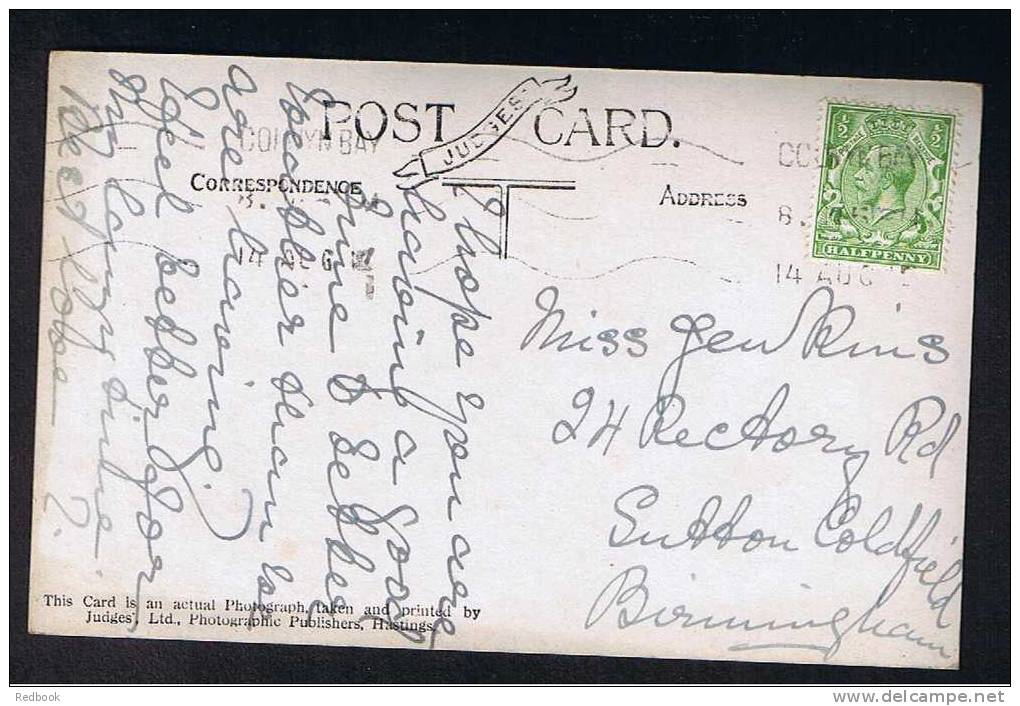 POST CARD.
JUDGES'
COLWYN BAY
COLWYN BAY
CORRESPONDENCE
ADDRESS
14 AUG
14 AUG
HALFPENNY
I hope you are
having a good
time & better
weather than we
are having.
feel better for
my
Miss Jenkins
24 Rectory Rd
Sutton Coldfield
Birmingham
This Card is an actual Photograph, taken and printed by
Judges', Ltd., Photographic Publishers, Hastings.
Redbook
www.delcampe.net